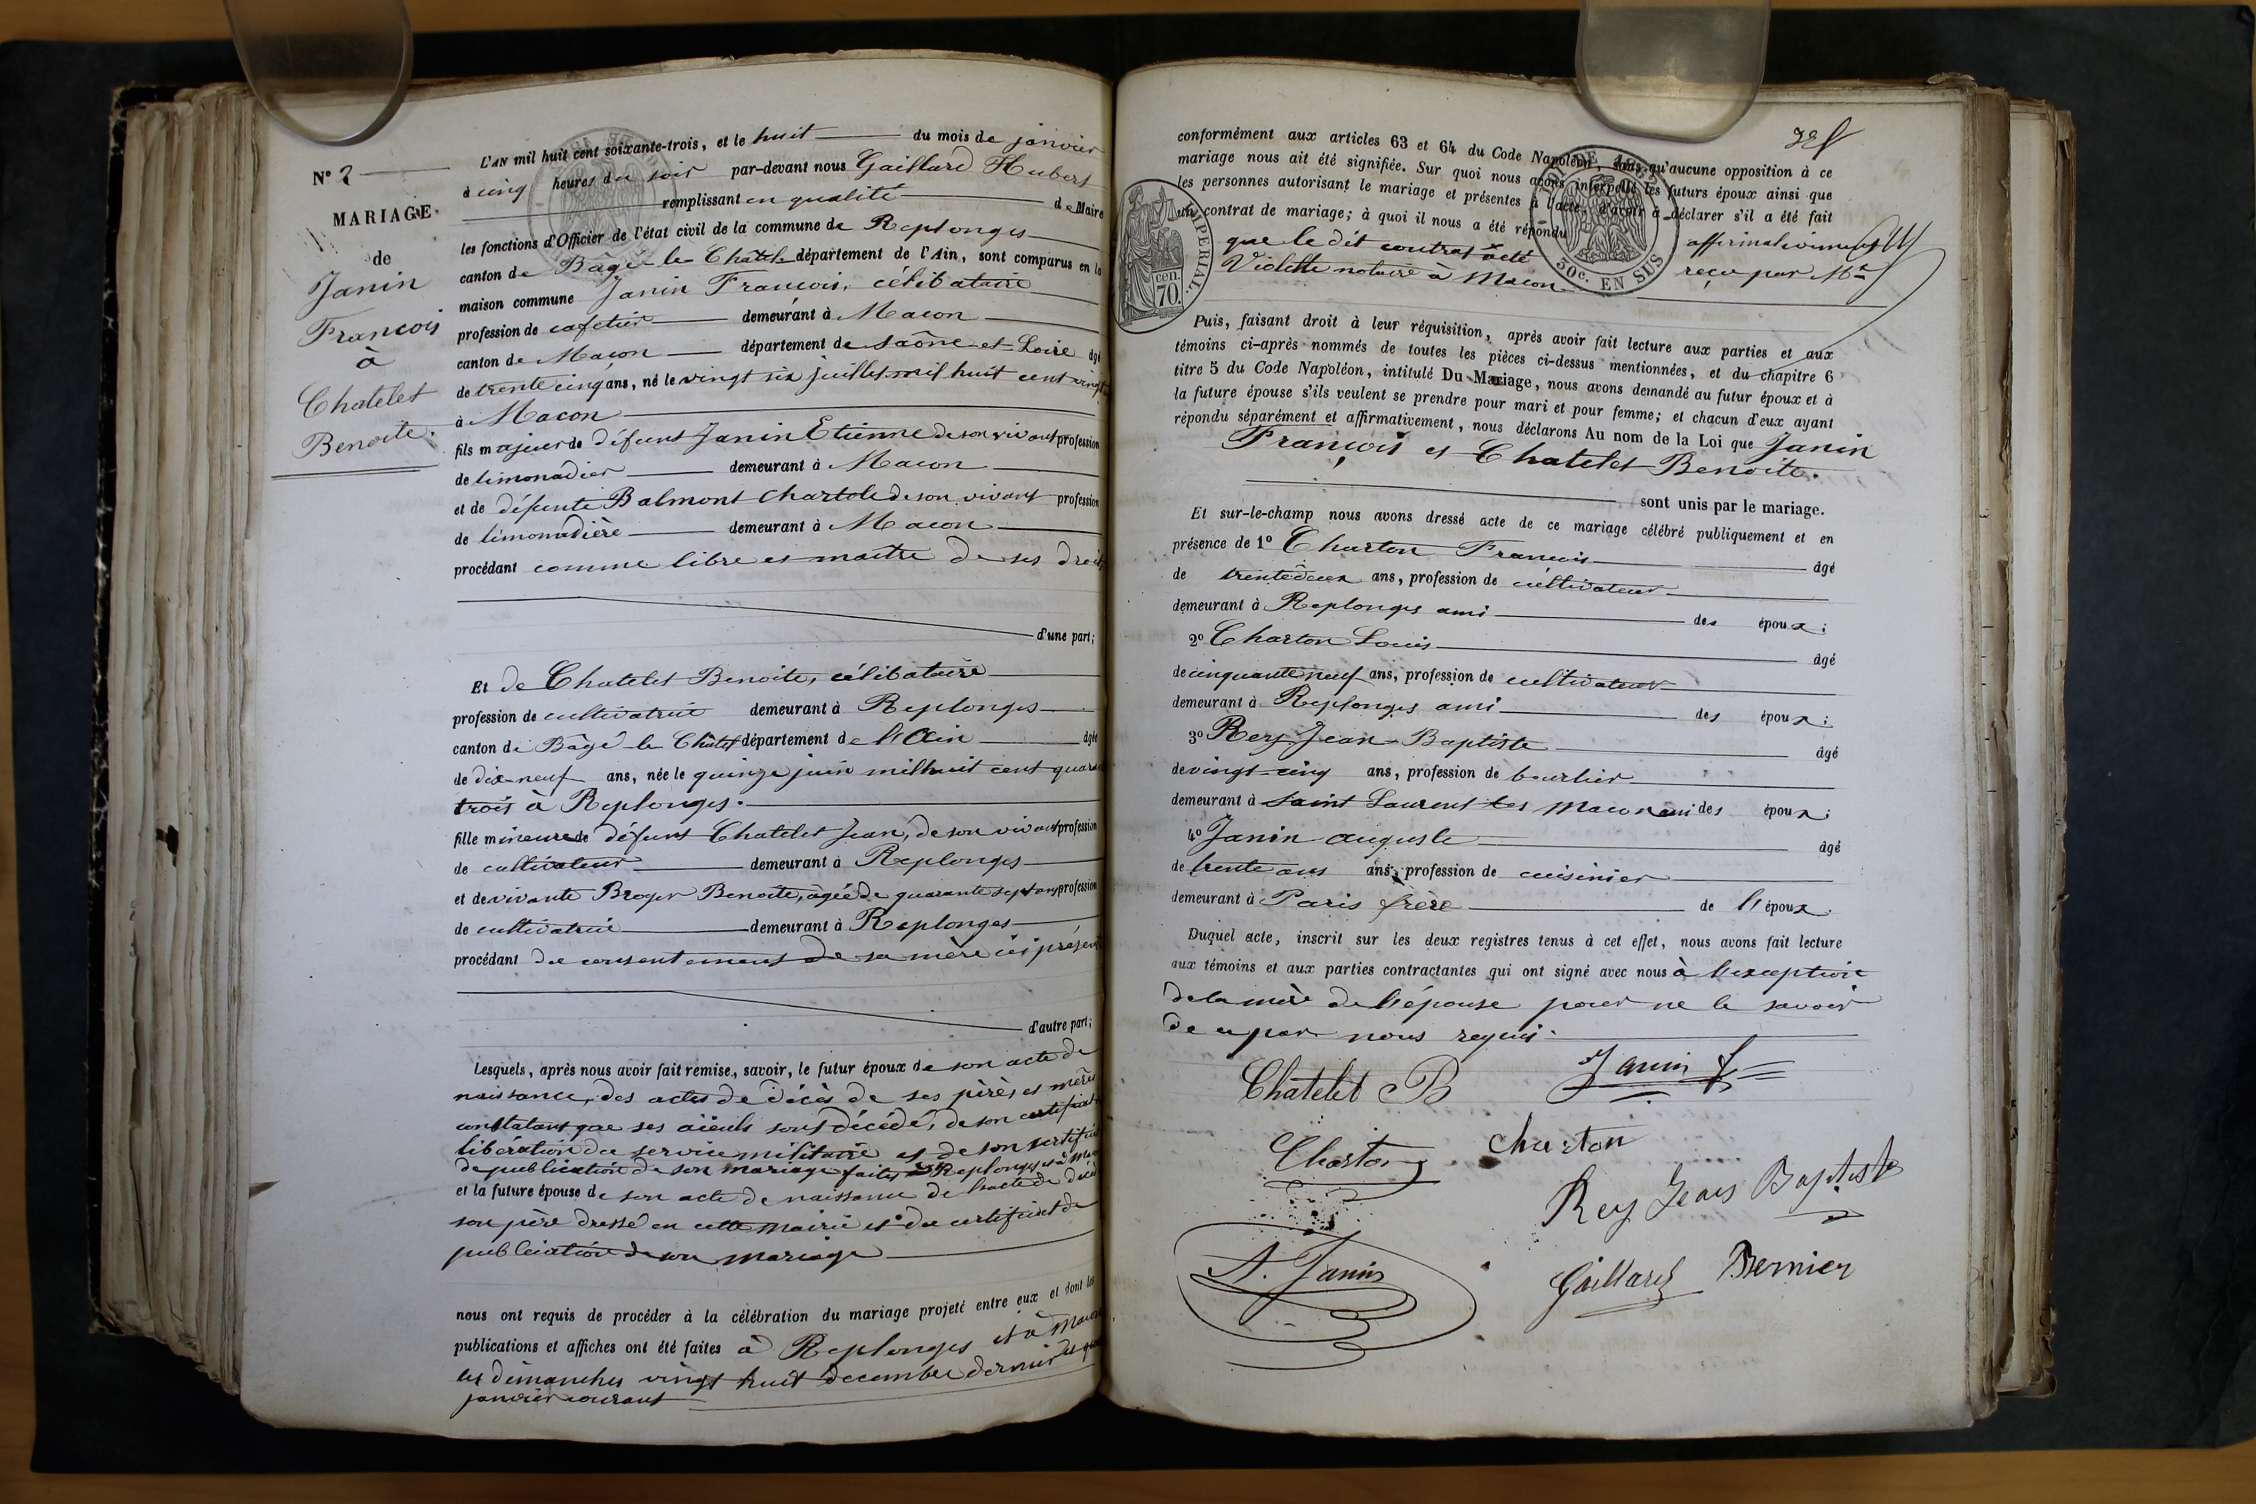 N° 2
MARIAGE
de
Janin
François
à
Chatelet
Benoite.
L'AN mil huit cent soixante-trois, et le huit du mois de janvier
à cinq heures du soir par-devant nous Gaillard Hubert
remplissant en qualité de Maire
les fonctions d'Officier de l'état civil de la commune de Replonges
canton de Bâgé-le-Châtel département de l'Ain, sont comparus en la
maison commune Janin François, célibataire
profession de cafetier demeurant à Macon
canton de Macon département de Saône-et-Loire âgé
de trente cinq ans, né le vingt six juillet mil huit cent vingt
à Macon
fils majeur de défunt Janin Etienne de son vivant profession
de limonadier demeurant à Macon
et de défunte Balmont Chartole de son vivant profession
de limonadière demeurant à Macon
procédant comme libre et maitre de ses droits
d'une part;
Et de Chatelet Benoite, célibataire
profession de cultivatrice demeurant à Replonges
canton de Bâgé-le-Châtel département de l'Ain âgée
de dix-neuf ans, née le quinze juin mil huit cent quarante
trois à Replonges.
fille mineure de défunt Chatelet Jean, de son vivant profession
de cultivateur demeurant à Replonges
et de vivante Broyer Benoite, agée de quarante sept ans profession
de cultivatrice demeurant à Replonges
procédant du consentement de sa mère ici présente
d'autre part;
Lesquels, après nous avoir fait remise, savoir, le futur époux de son acte de
naissance, des actes de décès de ses pères et mères
constatant que ses aïeuls sont décédé, de son certificat
libération du service militaire et de son certificat
de publication de son mariage faites à Replonges et à Macon
et la future épouse de son acte de naissance de l'acte de décès
son père dressé en cette mairie et du certificat de
publication de son mariage
nous ont requis de procéder à la célébration du mariage projeté entre eux et dont les
publications et affiches ont été faites à Replonges et à Macon
les dimanches vingt huit decembre dernier et quatre
janvier courant
conformément aux articles 63 et 64 du Code Napoléon, sans qu'aucune opposition à ce
mariage nous ait été signifiée. Sur quoi nous avons interpellé les futurs époux ainsi que
les personnes autorisant le mariage et présentes à l'acte, d'avoir à déclarer s'il a été fait
un contrat de mariage; à quoi il nous a été répondu affirmativement
que le dit contrat a été reçu par Me
Violette notaire à Macon
IMPERIAL.
70 cen.
30c. EN SUS
Puis, faisant droit à leur réquisition, après avoir fait lecture aux parties et aux
témoins ci-après nommés de toutes les pièces ci-dessus mentionnées, et du chapitre 6
titre 5 du Code Napoléon, intitulé Du Mariage, nous avons demandé au futur époux et à
la future épouse s'ils veulent se prendre pour mari et pour femme; et chacun d'eux ayant
répondu séparément et affirmativement, nous déclarons Au nom de la Loi que Janin
François et Chatelet Benoite.
sont unis par le mariage.
Et sur-le-champ nous avons dressé acte de ce mariage célébré publiquement et en
présence de 1° Charton François âgé
de trente deux ans, profession de cultivateur
demeurant à Replonges ami des époux;
2° Charton Louis âgé
de cinquante neuf ans, profession de cultivateur
demeurant à Replonges ami des époux;
3° Rey Jean Baptiste âgé
de vingt-cinq ans, profession de bourlier
demeurant à Saint Laurent les Macon ami des époux;
4° Janin auguste âgé
de trente ans ans, profession de cuisinier
demeurant à Paris frère de l'époux
Duquel acte, inscrit sur les deux registres tenus à cet effet, nous avons fait lecture
aux témoins et aux parties contractantes qui ont signé avec nous à l'exception
de la mère de l'épouse pour ne le savoir
de ce par nous requis.
Chatelet B Janin f
Charton Charton
Rey Jean Baptiste
A. Janin
Gaillard Bernier